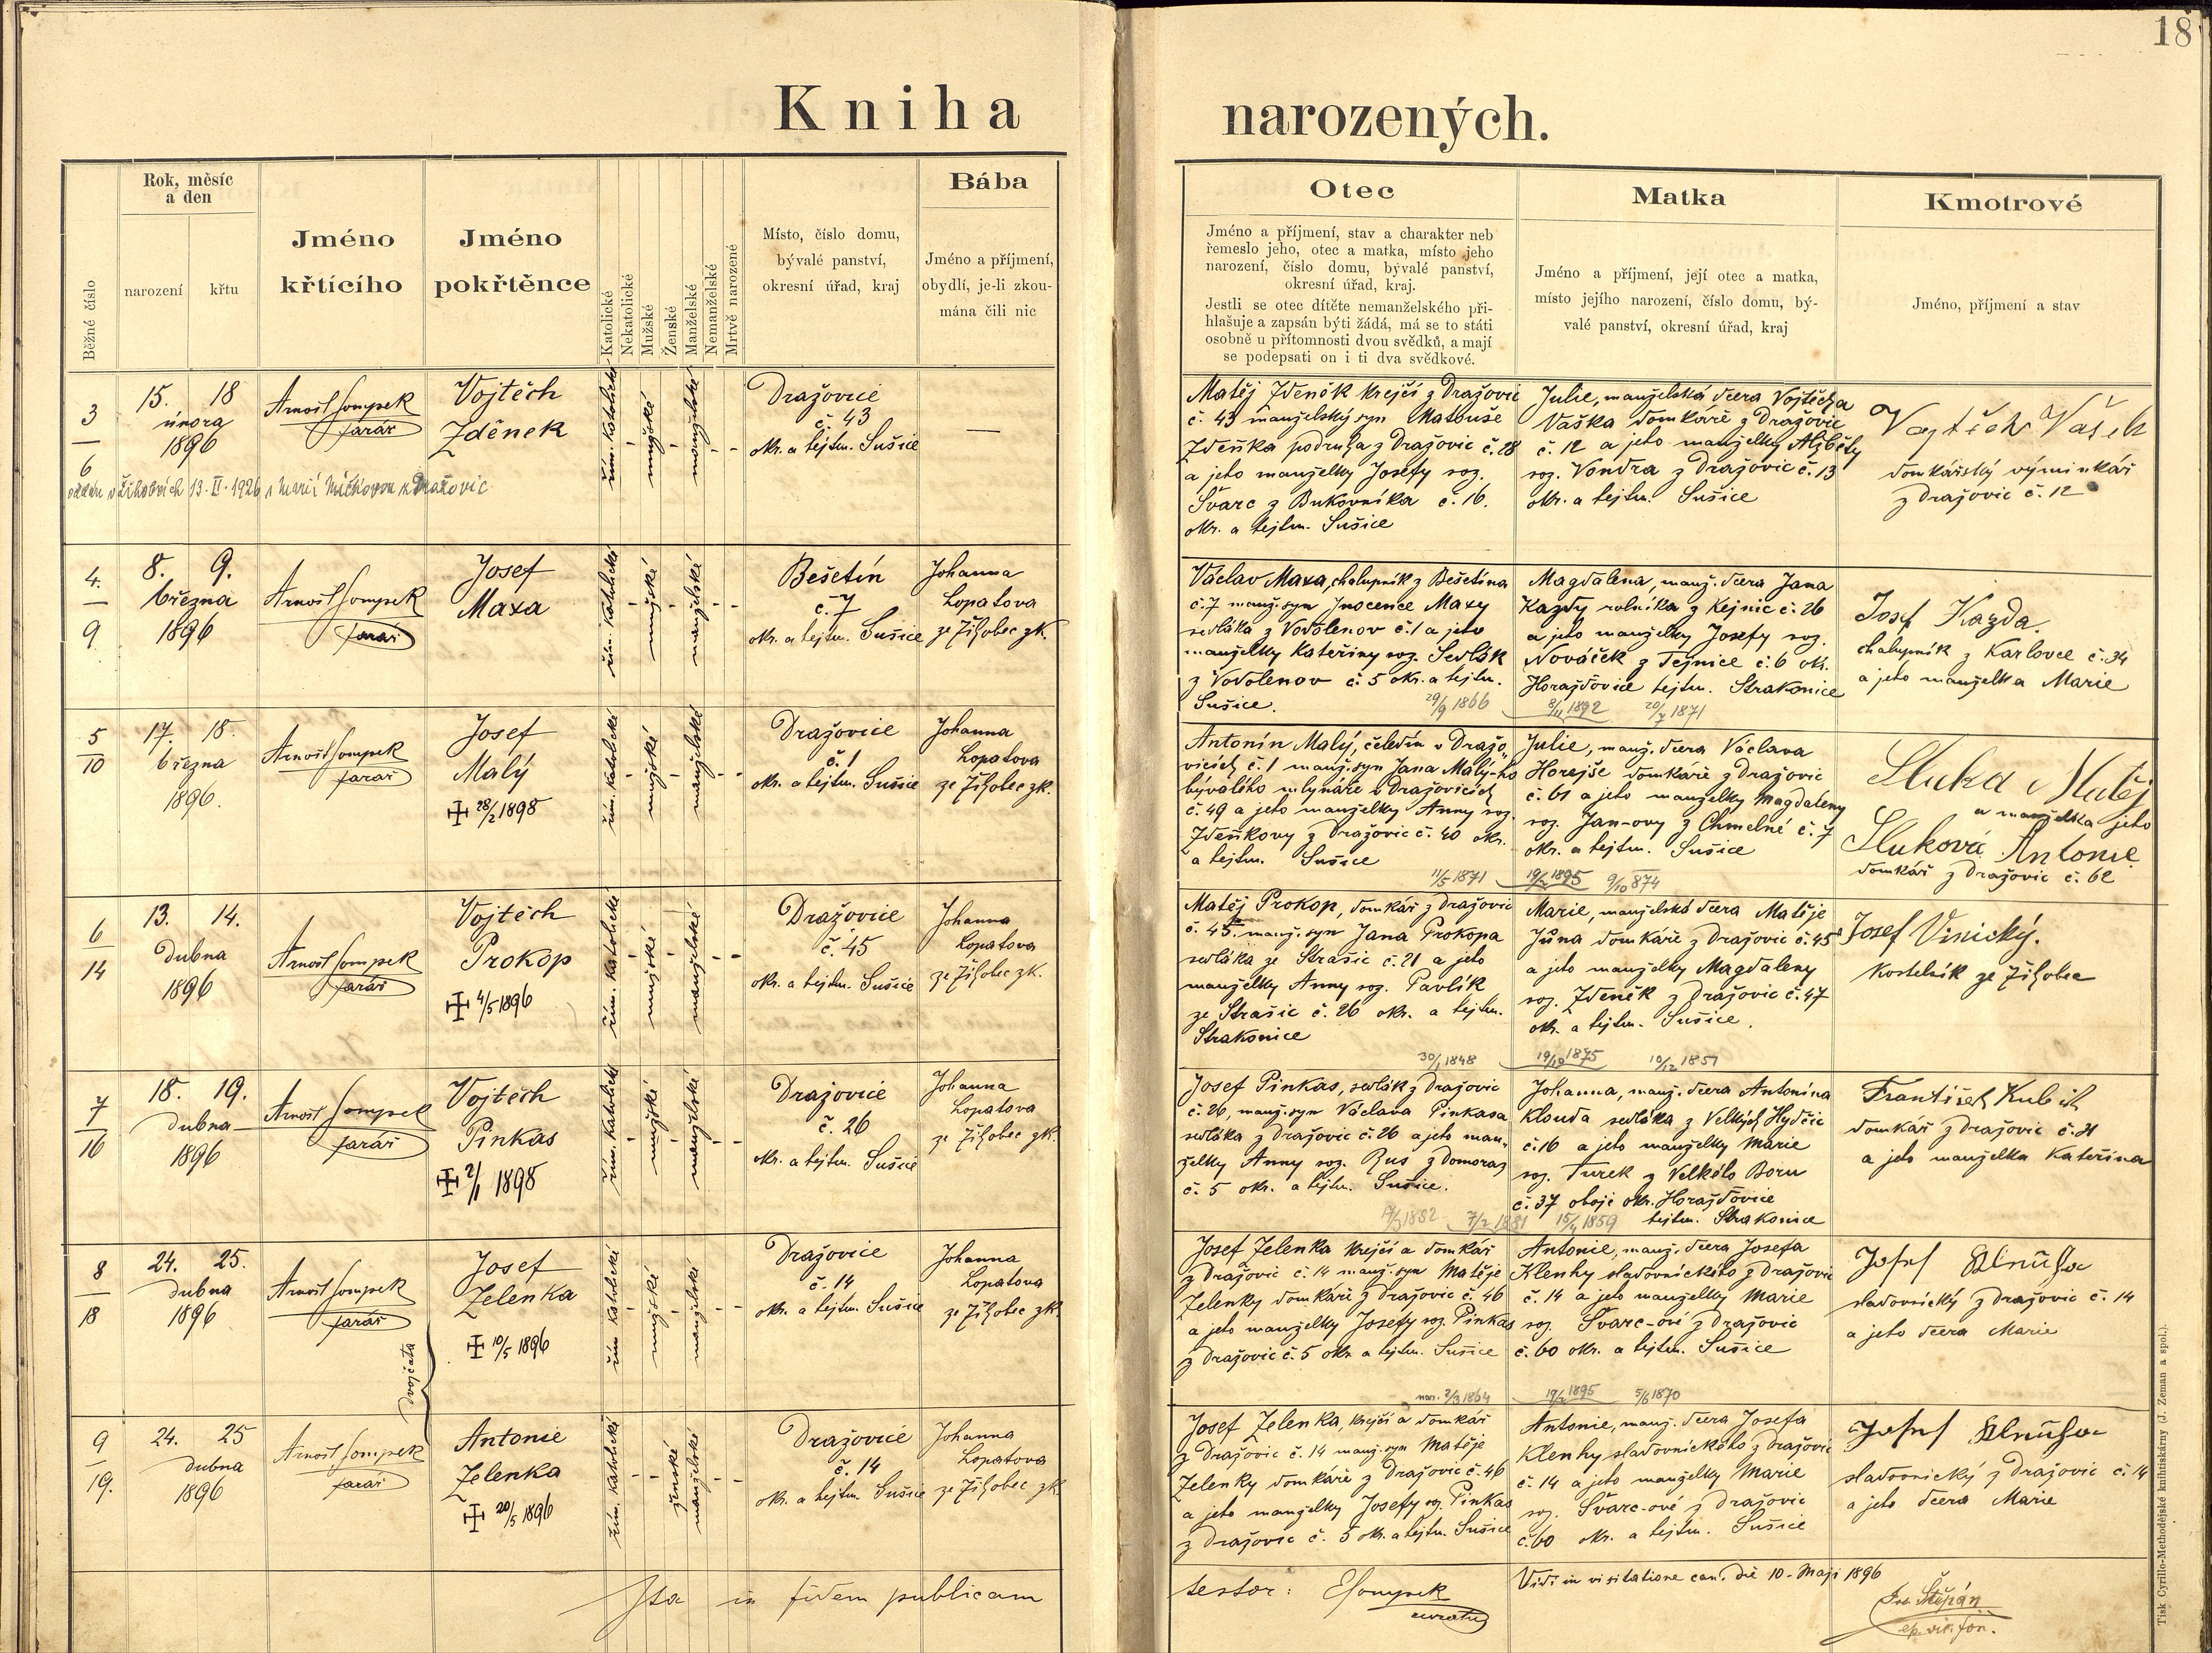 18
Kniha narozených.
Běžné číslo
Rok, měsíc
a den
narození
křtu
Jméno
křtícího
Jméno
pokřtěnce
Katolické
Nekatolické
Mužské
Ženské
Manželské
Nemanželské
Mrtvě narozené
Místo, číslo domu,
bývalé panství,
okresní úřad, kraj
Bába
Jméno a příjmení,
obydlí, je-li zkou-
mána čili nic
Otec
Jméno a příjmení, stav a charakter neb
řemeslo jeho, otec a matka, místo jeho
narození, číslo domu, bývalé panství,
okresní úřad, kraj.
Jestli se otec dítěte nemanželského při-
hlašuje a zapsán býti žádá, má se to státi
osobně u přítomnosti dvou svědků, a mají
se podepsati on i ti dva svědkové.
Matka
Jméno a příjmení, její otec a matka,
místo jejího narození, číslo domu, bý-
valé panství, okresní úřad, kraj
Kmotrové
Jméno, příjmení a stav
3
6
15. 18
února
1896
Arnošt Sompek
farář
Vojtěch
Zděnek
řím. katolické
mužské
manželské
Dražovice
č. 43
okr. a hejtm. Sušice
—
oddán v Žihobcích 13. II. 1926 s Marií Míčkovou z Dražovic
Matěj Zdeněk krejčí z Dražovic
č. 43 manželský syn Matouše
Zdeňka podruha z Dražovic č. 28
a jeho manželky Josefy roz.
Švarc z Bukovníka č. 16.
okr. a hejtm. Sušice
Julie, manželská dcera Vojtěcha
Vaška domkáře z Dražovic
č. 12 a jeho manželky Alžběty
roz. Vondra z Dražovic č. 13
okr. a hejtm. Sušice
Vojtěch Vašek
domkářský výminkář
z Dražovic č. 12
4.
9
8. 9.
března
1896
Arnošt Sompek
farář
Josef
Maxa
řím. katolické
mužské
manželské
Bešetín
č. 7
okr. a hejtm. Sušice
Johanna
Lopatova
ze Žihobec zk.
Václav Maxa, chalupník z Bešetína
č. 7 manž. syn Inocence Maxy
sedláka z Vodolenov č. 1 a jeho
manželky Kateřiny roz. Sedlák
z Vodolenov č. 5 okr. a hejtm.
Sušice.
29/9 1866
Magdalena, manž. dcera Jana
Kazdy rolníka z Kejnic č. 26
a jeho manželky Josefy roz.
Nováček z Tejnice č. 6 okr.
Horažďovice hejtm. Strakonice
8/11 1892 20/7 1871
Josef Kazda.
chalupník z Karlovce č. 34
a jeho manželka Marie
5
10
17. 18.
března
1896.
Arnošt Sompek
farář
Josef
Malý
✠ 28/2 1898
řím. katolické
mužské
manželské
Dražovice
č. 1
okr. a hejtm. Sušice
Johanna
Lopatova
ze Žihobec zk.
Antonín Malý, čeledín v Dražo-
vicích č. 1 manž. syn Jana Malý-ho
bývalého mlynáře v Dražovicích
č. 49 a jeho manželky Anny roz.
Zdeňkovy z Dražovic č. 40 okr.
a hejtm. Sušice
11/5 1871
Julie, manž. dcera Václava
Horejše domkáře z Dražovic
č. 61 a jeho manželky Magdaleny
roz. Jan-ovy z Chmelné č. 7
okr. a hejtm. Sušice
19/2 1895 9/10 874
Sluka Matěj
a manželka jeho
Sluková Antonie
domkář z Dražovic č. 62
6
14
13. 14.
dubna
1896
Arnošt Sompek
farář
Vojtěch
Prokop
✠ 4/5 1896
řím. katolické
mužské
manželské
Dražovice
č. 45
okr. a hejtm. Sušice
Johanna
Lopatova
ze Žihobec zk.
Matěj Prokop, domkář z Dražovic
č. 45 manž. syn Jana Prokopa
sedláka ze Strašic č. 21 a jeho
manželky Anny roz. Pavlík
ze Strašic č. 26 okr. a hejtm.
Strakonice
30/1 1848
Marie, manželská dcera Matěje
Jůna domkáře z Dražovic č. 45
a jeho manželky Magdaleny
roz. Zdeněk z Dražovic č. 47
okr. a hejtm. Sušice.
1875 10/12 1851
Josef Vinický.
kostelník ze Žihobec
7
16
18. 19.
dubna
1896
Arnošt Sompek
farář
Vojtěch
Pinkas
✠ 2/1 1898
řím. katolické
mužské
manželské
Dražovice
č. 26
okr. a hejtm. Sušice
Johanna
Lopatova
ze Žihobec zk.
Josef Pinkas, sedlák z Dražovic
č. 26, manž. syn Václava Pinkasa
sedláka z Dražovic č. 26 a jeho man-
želky Anny roz. Rus z Domoraz
č. 5 okr. a hejtm. Sušice.
1852 7/2 1881
Johanna, manž. dcera Antonína
Klouda sedláka z Velkých Hydčic
č. 16 a jeho manželky Marie
roz. Turek z Velkého Boru
č. 37 oboje okr. Horažďovice
hejtm. Strakonice
15/4 1859
František Kubich
domkář z Dražovic č. 21
a jeho manželka Kateřina
8
18
24. 25.
dubna
1896
Arnošt Sompek
farář
dvojčata
Josef
Zelenka
✠ 10/5 1896
řím. katolické
mužské
manželské
Dražovice
č. 14
okr. a hejtm. Sušice
Johanna
Lopatova
ze Žihobec zk.
Josef Zelenka krejčí a domkář
z Dražovic č. 14 manž. syn Matěje
Zelenky domkáře z Dražovic č. 46
a jeho manželky Josefy roz. Pinkas
z Dražovic č. 5 okr. a hejtm. Sušice
nar. 2/3 1864
Antonie, manž. dcera Josefa
Klenhy sladovnického z Dražovic
č. 14 a jeho manželky Marie
roz. Švarc-ové z Dražovic
č. 60 okr. a hejtm. Sušice
19/2 1895 5/6 1870
Josef
sladovnický z Dražovic č. 14
a jeho dcera Marie
9
19.
24. 25
dubna
1896
Arnošt Sompek
farář
Antonie
Zelenka
✠ 20/5 1896
řím. katolické
ženské
manželské
Dražovice
č. 14
okr. a hejtm. Sušice
Johanna
Lopatova
ze Žihobec zk.
Josef Zelenka, krejčí a domkář
z Dražovic č. 14 manž. syn Matěje
Zelenky domkáře z Dražovic č. 46
a jeho manželky Josefy roz. Pinkas
z Dražovic č. 5 okr. a hejtm. Sušice
Antonie, manž. dcera Josefa
Klenhy sladovnického z Dražovic
č. 14 a jeho manželky Marie
roz. Švarc-ové z Dražovic
č. 60 okr. a hejtm. Sušice
Josef
sladovnický z Dražovic č. 14
a jeho dcera Marie
Ita in fidem publicam
testor: ESompek
curatus
Vidi in visitatione can. die 10. Maji 1896
Štěpán
ep. vic. for.
Tisk Cyrillo-Methodějské knihtiskárny (J. Zeman a spol.).